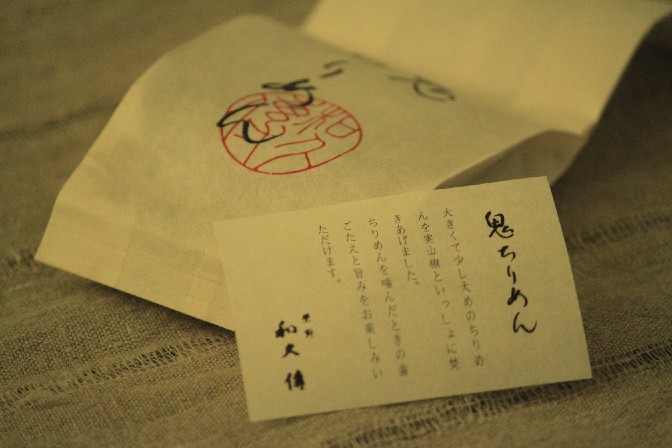 りめん
鬼ちりめん
大きくて少し太めのちりめ
んを実山椒といっしょに焚
きあげました。
ちりめんを噛んだときの歯
ごたえと旨みをお楽しみい
ただけます。
紫野
和久傳